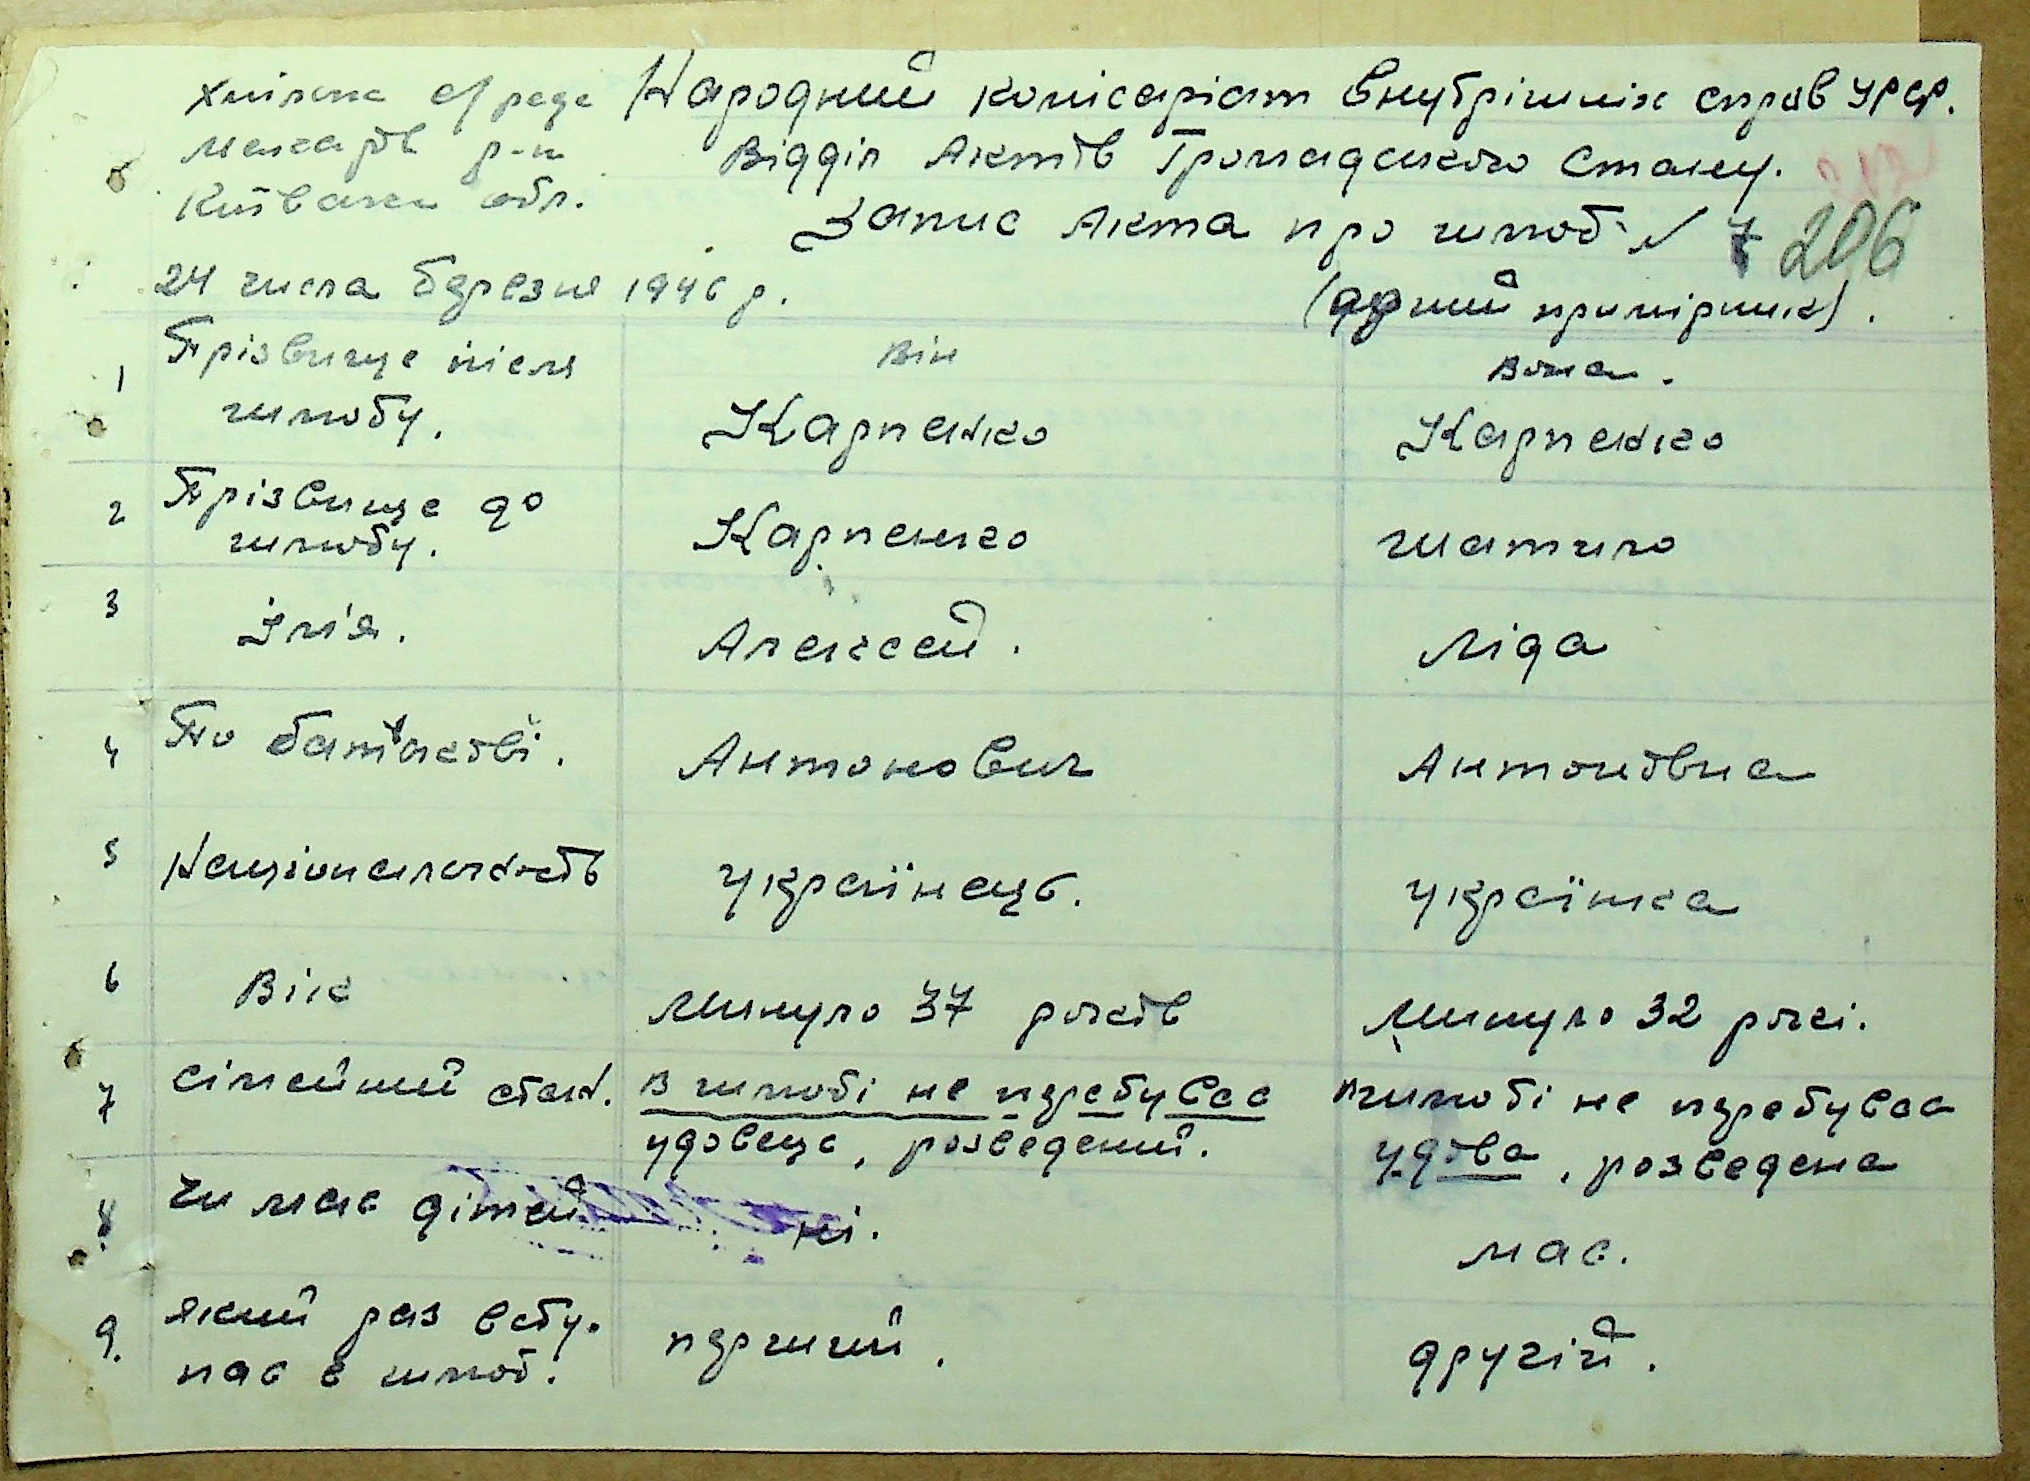 Хмільна с/рада
Макарів р-н
Київська обл.
Народний комісаріат Внутрішніх справ УРСР.
Відділ Актів Громадського Стану.
Запис Акта про шлюб № 7
206
24 числа березня 1946 р.
(другий примірник).
Він
Вона.
1 Прізвище після
шлюбу.
Карпенко
Карпенко
2 Прізвище до
шлюбу.
Карпенко
Шатило
3 Ім'я.
Алексей.
Ліда
4 По батькові.
Антонович
Антонівна
5 Національність
Українець.
Українка
6 Вік
Минуло 37 років
Минуло 32 рокі.
7 Сімейний стан.
В шлюбі не перебуває
удовець, розведений.
В шлюбі не перебуває
удова, розведена
8 Чи має дітей
ні.
має.
9. Який раз всту-
пає в шлюб.
перший.
другій.